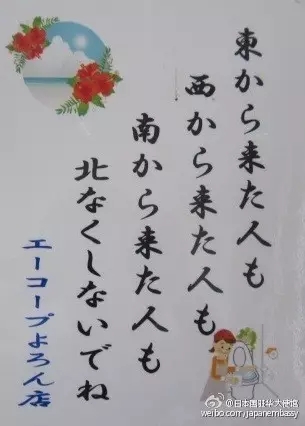 東から来た人も
西から来た人も
南から来た人も
北なくしないでね
エーコープよろん店
@日本国驻华大使馆
weibo.com/japanembassy